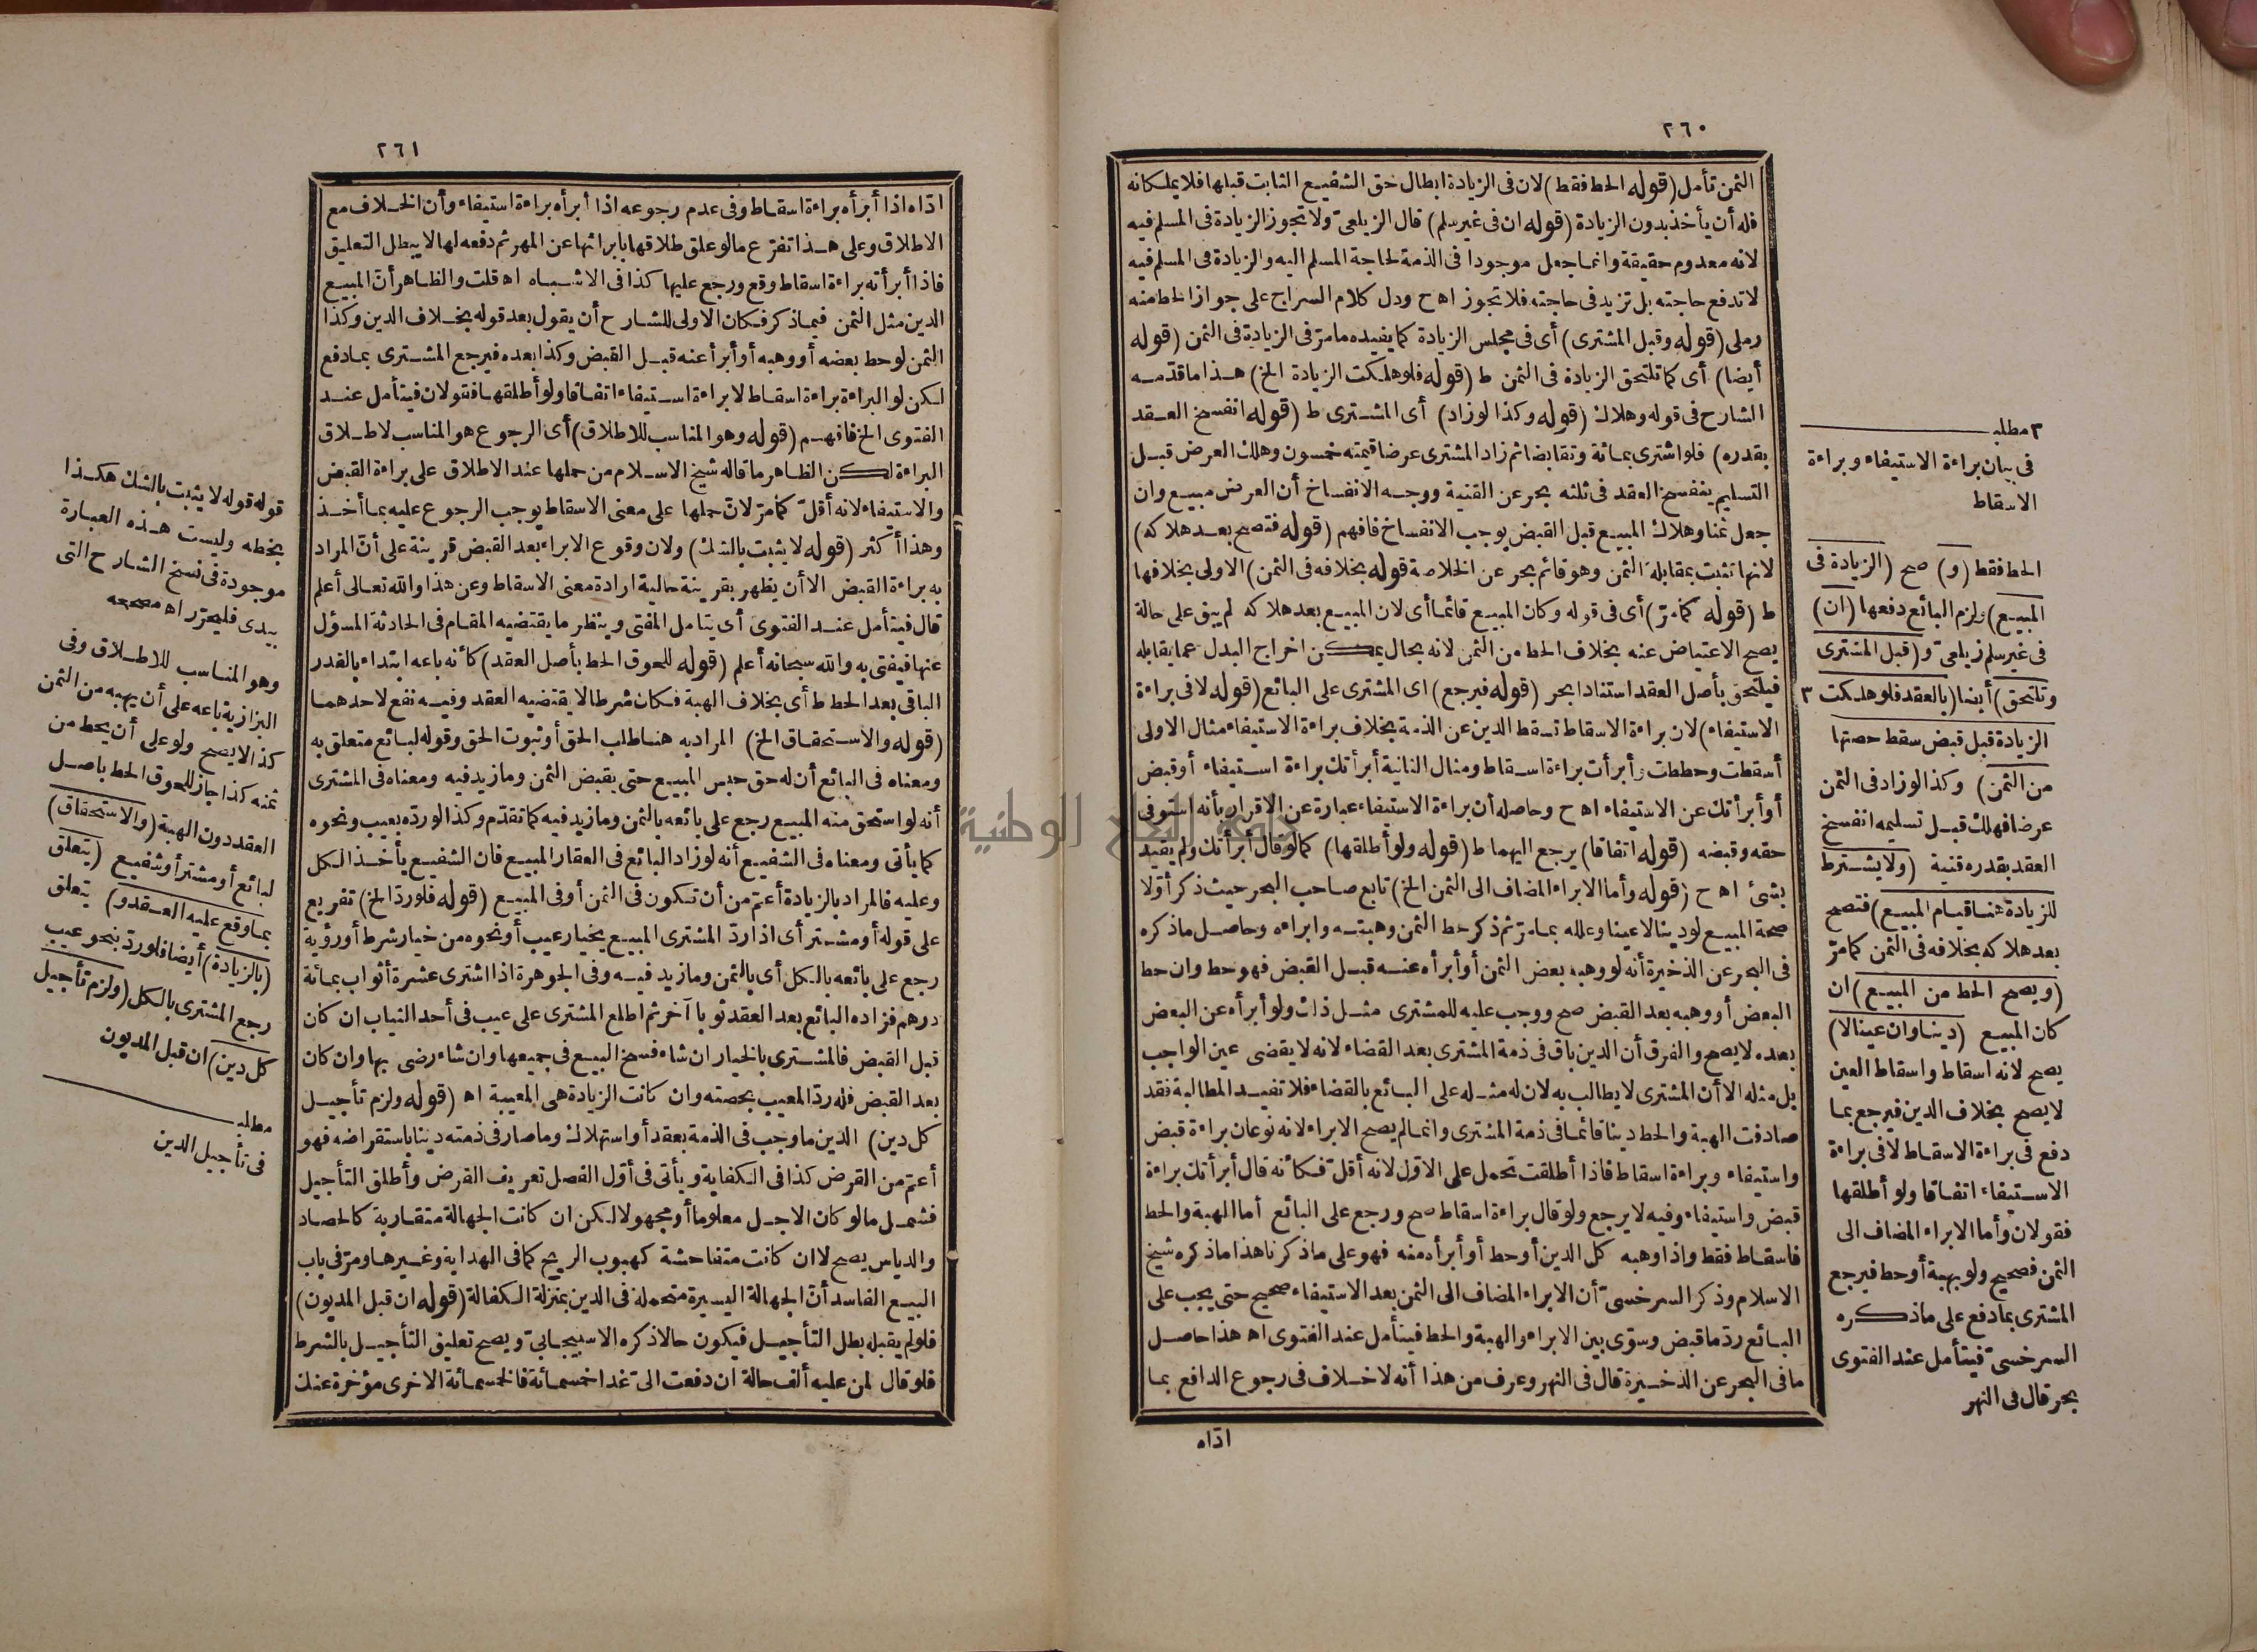 ٢٦٠
الثمن تأمل (قوله الحط فقط) لان فى الزيادة ابطال حق الشفيع الثابت قبلها فلا يملكانه
فله أن يأخذ بدون الزيادة (قوله ان فى غير سلم) قال الزيلعىّ ولا تجوز الزيادة فى المسلم فيه
لانه معدوم حقيقة وانما جعل موجودا فى الذمة لحاجة المسلم اليه والزيادة فى المسلم فيه
لا تدفع حاجته بل تزيد فى حاجته فلا تجوز اه ح ودل كلام السراج على جواز الحط منه
رملى (قوله وقبل المشترى) أى فى مجلس الزيادة كما يفيده مامرّ فى الزيادة فى الثمن (قوله
أيضا) أى كما تلتحق الزيادة فى الثمن ط (قوله فلو هلكت الزيادة الخ) هذا ما قدّمه
الشارح فى قوله وهلاك (قوله وكذا لو زاد) أى المشترى ط (قوله انفسخ العقد
بقدره) فلو اشترى بمائة وتقابضا ثم زاد المشترى عرضا قيمته خمسون وهلك العرض قبل
التسليم ينفسخ العقد فى ثلثه بحر عن القنية ووجه الانفساخ أن العرض مبيع وان
جعل ثمنا وهلاك المبيع قبل القبض يوجب الانفساخ فافهم (قوله فتصح بعد هلاكه)
لانها تثبت بمقابلة الثمن وهو قائم بحر عن الخلاصة قوله بخلافه فى الثمن) الاولى بخلافها
ط (قوله كما مرّ) أى فى قوله وكان المبيع قائما أى لان المبيع بعد هلاكه لم يبق على حالة
يصح الاعتياض عنه بخلاف الحط من الثمن لانه بحال يمكن اخراج البدل عما يقابله
فيلتحق بأصل العقد استنادا بحر (قوله فيرجع) اى المشترى على البائع (قوله لا فى براءة
الاستيفاء) لان براءة الاسقاط تسقط الدين عن الذمة بخلاف براءة الاستيفاء مثال الاولى
أسقطت وحططت وأبرأت براءة اسقاط ومثال الثانية أبرأتك براءة استيفاء أو قبض
أو أبرأتك عن الاستيفاء اه ح وحاصله أن براءة الاستيفاء عبارة عن الاقرار بأنه استوفى
حقه وقبضه (قوله اتفاقا) يرجع اليهما ط (قوله ولو أطلقها) كما لو قال أبرأتك ولم يقيد
بشئ اه ح (قوله وأما الابراء المضاف الى الثمن الخ) تابع صاحب البحر حيث ذكر أوّلا
صحة المبيع لو دينا لا عينا وعلله بما مرّ ثم ذكر حط الثمن وهبته وابراءه وحاصل ما ذكره
فى البحر عن الذخيرة أنه لو وهبه بعض الثمن أو أبرأه عنه قبل القبض فهو حط وان حط
البعض أو وهبه بعد القبض صح ووجب عليه للمشترى مثل ذلك ولو أبرأه عن البعض
بعده لا يصح والفرق أن الدين باق فى ذمة المشترى بعد القضاء لانه لا يقضى عين الواجب
بل مثله الا أن المشترى لا يطالب به لان له مثله على البائع بالقضاء فلا تفيد المطالبة فقد
صادفت الهبة والحط دينا قائما فى ذمة المشترى وانما لم يصح الابراء لانه نوعان براءة قبض
واستيفاء وبراءة اسقاط فاذا أطلقت تحمل على الاوّل لانه أقلّ فكأنه قال أبرأتك براءة
قبض واستيفاء وفيه لا يرجع ولو قال براءة اسقاط صح ورجع على البائع أما الهبة والحط
فاسقاط فقط واذا وهبه كل الدين أو حط أو أبرأه منه فهو على ما ذكرنا هذا ما ذكره شيخ
الاسلام وذكر السرخسىّ أن الابراء المضاف الى الثمن بعد الاستيفاء صحيح حتى يجب على
البائع ردّ ما قبض وسوّى بين الابراء والهبة والحط فيتأمل عند الفتوى اه هذا حاصل
ما فى البحر عن الذخيرة قال فى النهر وعرف من هذا أنه لا خلاف فى رجوع الدافع بما
ادّاه
٣ مطلب
فى بيان براءة الاستيفاء وبراءة
الاسقاط
الحط فقط (و) صح (الزيادة فى
المبيع) ولزم البائع دفعها (ان)
فى غير سلم زيلعىّ و(قبل المشترى
وتلتحق) أيضا (بالعقد فلو هلكت ٣
الزيادة قبل قبض سقط حصتها
من الثمن) وكذا لو زاد فى الثمن
عرضا فهلك قبل تسليمه انفسخ
العقد بقدره قنية (ولا يشترط
للزيادة هنا قيام المبيع) فتصح
بعد هلاكه بخلافه فى الثمن كما مرّ
(ويصح الحط من المبيع) ان
كان المبيع (دينا وان عينا لا)
يصح لانه اسقاط واسقاط العين
لا يصح بخلاف الدين فيرجع بما
دفع فى براءة الاسقاط لا فى براءة
الاستيفاء اتفاقا ولو أطلقها
فقولان وأما الابراء المضاف الى
الثمن فصحيح ولو بهبة أو حط فيرجع
المشترى بما دفع على ما ذكره
السرخسىّ فيتأمل عند الفتوى
بحر قال فى النهر
٢٦١
ادّاه اذا أبرأه براءة اسقاط وفى عدم رجوعه اذا أبرأه براءة استيفاء وأن الخلاف مع
الاطلاق وعلى هذا تفرّع ما لو علق طلاقها بابرائها عن المهر ثم دفعه لها لا يبطل التعليق
فاذا أبرأته براءة اسقاط وقع ورجع عليها كذا فى الاشباه اه قلت والظاهر أنّ المبيع
الدين مثل الثمن فيما ذكر فكان الاولى للشارح أن يقول بعد قوله بخلاف الدين وكذا
الثمن لو حط بعضه أو وهبه أو أبرأ عنه قبل القبض وكذا بعده فيرجع المشترى بما دفع
لكن لو البراءة براءة اسقاط لا براءة استيفاء اتفاقا ولو أطلقها فقولان فيتأمل عند
الفتوى الخ فافهم (قوله وهو المناسب للاطلاق) أى الرجوع هو المناسب لاطلاق
البراءة لكن الظاهر ما قاله شيخ الاسلام من حملها عند الاطلاق على براءة القبض
والاستيفاء لانه أقلّ كما مرّ لانّ حملها على معنى الاسقاط يوجب الرجوع عليه بما أخذ
وهذا أكثر (قوله لا يثبت بالشك) ولان وقوع الابراء بعد القبض قرينة على أنّ المراد
به براءة القبض الا أن يظهر بقرينة حالية ارادة معنى الاسقاط وعن هذا والله تعالى أعلم
قال فيتأمل عند الفتوى أى يتامل المفتى وينظر ما يقتضيه المقام فى الحادثة المسؤل
عنها فيفتى به والله سبحانه أعلم (قوله للحوق الحط بأصل العقد) كأنه باعه ابتداء بالقدر
الباقى بعد الحط ط أى بخلاف الهبة فكان شرطا لا يقتضيه العقد وفيه نفع لاحدهما
(قوله والاستحقاق الخ) المراد به هنا طلب الحق أو ثبوت الحق وقوله لبائع متعلق به
ومعناه فى البائع أن له حق حبس المبيع حتى يقبض الثمن وما زيد فيه ومعناه فى المشترى
أنه لو استحق منه المبيع رجع على بائعه بالثمن وما زيد فيه كما تقدّم وكذا لو ردّه بعيب ونحوه
كما يأتى ومعناه فى الشفيع أنه لو زاد البائع فى العقار المبيع فان الشفيع يأخذ الكل
وعليه فالمراد بالزيادة أعمّ من أن تكون فى الثمن أو فى المبيع (قوله فلو ردّ الخ) تفريع
على قوله أو مشتر أى اذا ردّ المشترى المبيع بخيار عيب أو نحوه من خيار شرط أو رؤية
رجع على بائعه بالكل أى بالثمن وما زيد فيه وفى الجوهرة اذا اشترى عشرة أثواب بمائة
درهم فزاده البائع بعد العقد ثوبا آخر ثم اطلع المشترى على عيب فى أحد الثياب ان كان
قبل القبض فالمشترى بالخيار ان شاء فسخ البيع فى جميعها وان شاء رضى بها وان كان
بعد القبض فله ردّ المعيب بحصته وان كانت الزيادة هى المعيبة اه (قوله ولزم تأجيل
كل دين) الدين ما وجب فى الذمة بعقد أو استهلاك وما صار فى ذمته دينا باستقراضه فهو
أعمّ من القرض كذا فى الكفاية ويأتى فى أوّل الفصل تعريف القرض وأطلق التأجيل
فشمل ما لو كان الاجل معلوما أو مجهولا لكن ان كانت الجهالة متقاربة كالحصاد
والدياس يصح لا ان كانت متفاحشة كهبوب الريح كما فى الهداية وغيرها ومرّ فى باب
البيع الفاسد أنّ الجهالة اليسيرة متحملة فى الدين بمنزلة الكفالة (قوله ان قبل المديون)
فلو لم يقبله بطل التأجيل فيكون حالا ذكره الاسبيجابىّ ويصح تعليق التأجيل بالشرط
فلو قال لمن عليه ألف حالة ان دفعت الىّ غدا خمسمائة فالخمسمائة الاخرى مؤخرة عنك
قوله قوله لا يثبت بالشك هكذا
بخطه وليست هذه العبارة
موجودة فى نسخ الشارح التى
بيدى فليحرّر اه مصححه
وهو المناسب للاطلاق وفى
البزازية باعه على أن يهبه من الثمن
كذا لا يصح ولو على أن يحط من
ثمنه كذا جاز للحوق الحط باصل
العقد دون الهبة (والاستحقاق)
لبائع أو مشتر أو شفيع (يتعلق
بما وقع عليه العقد و) يتعلق
(بالزيادة) أيضا فلو ردّ بنحو عيب
رجع المشترى بالكل (ولزم تأجيل
كل دين) ان قبل المديون
مطلب
فى تأجيل الدين
جامعة النجاح الوطنية